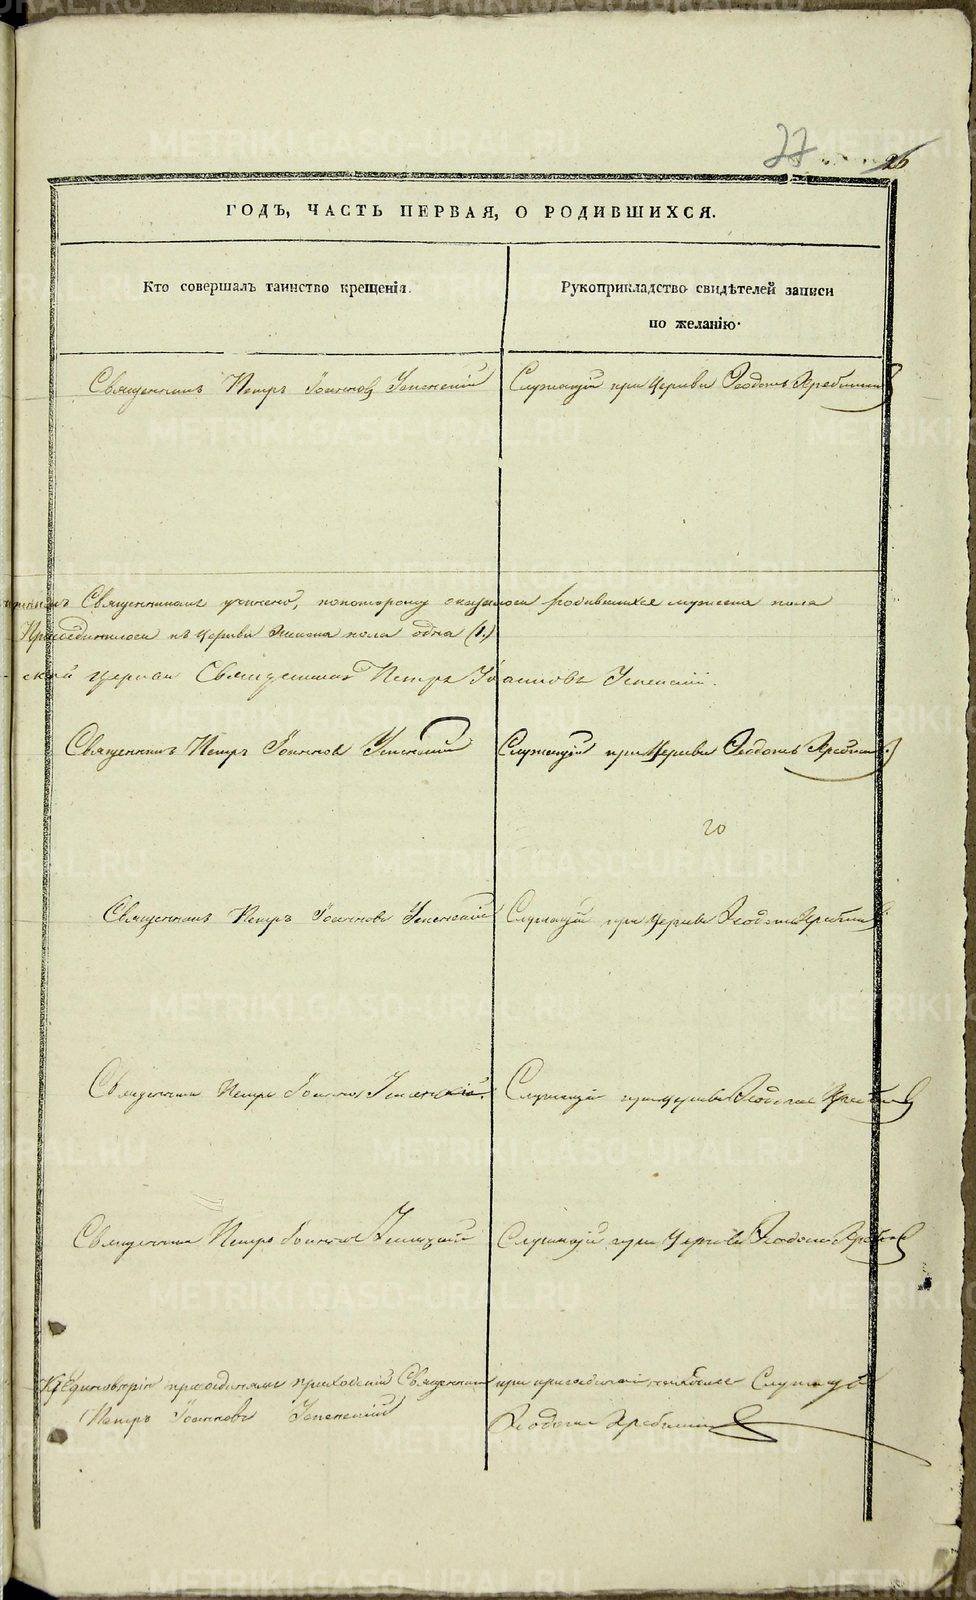 27
26
ГОДЪ, ЧАСТЬ ПЕРВАЯ, О РОДИВШИХСЯ.
Кто совершалъ таинство крещенія.
Рукоприкладство свидѣтелей записи
по желанію.
Священникъ Петръ Іоанновъ Успенскій
Служащій при Церкви Ѳеодотъ
Священникомъ учинено, по которому оказалось родившихся мужеска пола
Присоединилось къ Церкви женска пола одна (1.)
ской церкви Священникъ Петръ Іоанновъ Успенскій.
Священникъ Петръ Іоанновъ Успенскій
Служащій при Церкви Ѳеодотъ
20
Священникъ Петръ Іоанновъ Успенскій
Служащій при Церкви Ѳеодотъ
Священникъ Петръ Іоанновъ Успенскій.
Служащій при церкви Ѳеодотъ
Священникъ Петръ Іоанновъ Успенскій
Служащій при Церкви Ѳеодотъ
Къ Единовѣрію приходскій Священникъ
Петръ Іоанновъ Успенскій
при Служащій
Ѳеодотъ
METRIKI.GASO-URAL.RU